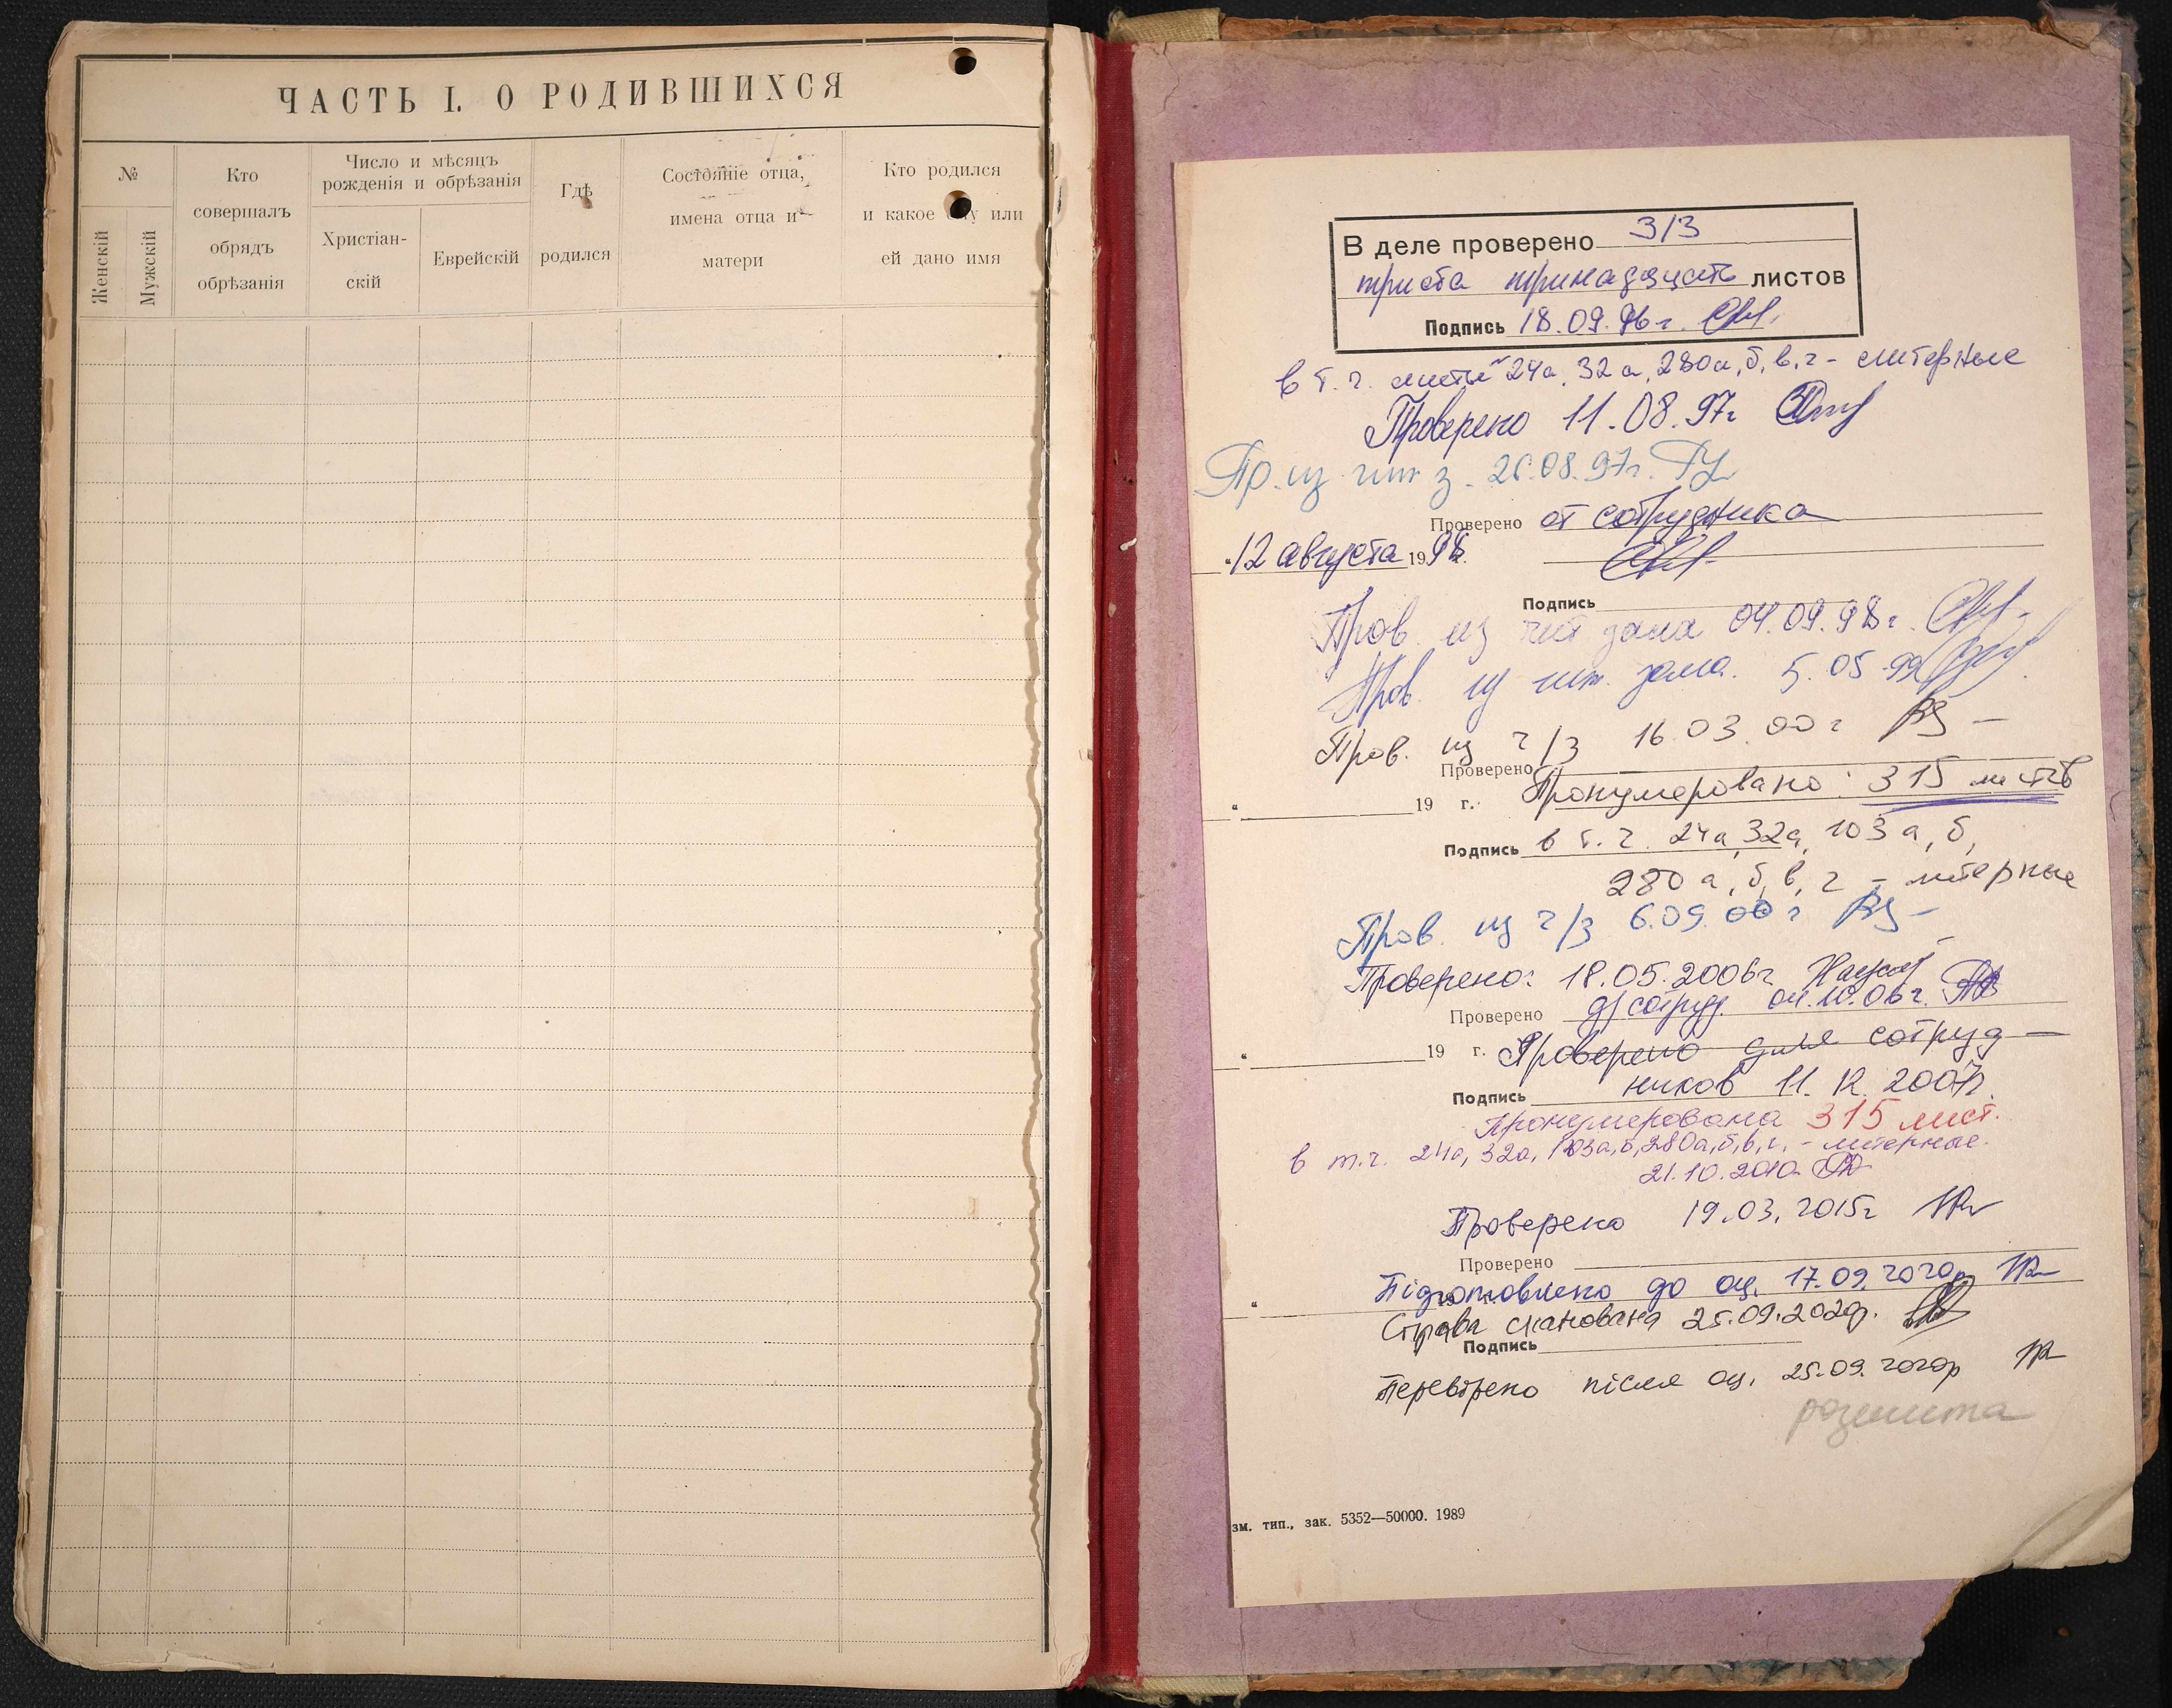 ЧАСТЬ I. О РОДИВШИХСЯ
№
Женскій
Мужскій
Кто
совершалъ
обрядъ
обрѣзанія
Число и мѣсяцъ
рожденія и обрѣзанія
Христіан-
скій
Еврейскій
Гдѣ
родился
Состояніе отца,
имена отца и
матери
Кто родился
и какое ему или
ей дано имя
В деле проверено 313
триста тринадцать листов
Подпись 18.09.96 г.
в т. ч. листы 24а, 32а, 280а, б, в, г - литерные
Проверено 11.08.97г
Пр. из чит з. 26.08.97г.
Проверено от сотрудника
"12 августа 1998.
Подпись
Пров. из чит зала 04.09.98г.
Пров. из чит. зала. 5.05.99
Пров. из ч/з 16.03.00г
Проверено
" 19 г. Пронумеровано: 315 листов
Подпись в т. ч. 24а, 32а, 103а, б,
280а, б, в, г - литерные
Пров. из ч/з 6.09.00г
Проверено: 18.05.2006г.
Проверено д/сотруд. 04.10.06г.
" 19 г. Проверено для сотруд-
ников 11.12.2007г.
Подпись
Пронумерована 315 лист.
в т.ч. 24а, 32а, 103а, б, 280а, б, в, г, - литерные.
21.10.2010
Проверено 19.03.2015г
Проверено
Підготовлено до оц. 17.09.2020р
Справа сканована 25.09.2020р.
Подпись
Перевірено після оц. 25.09.2020р
розшита
зм. тип., зак. 5352—50000. 1989